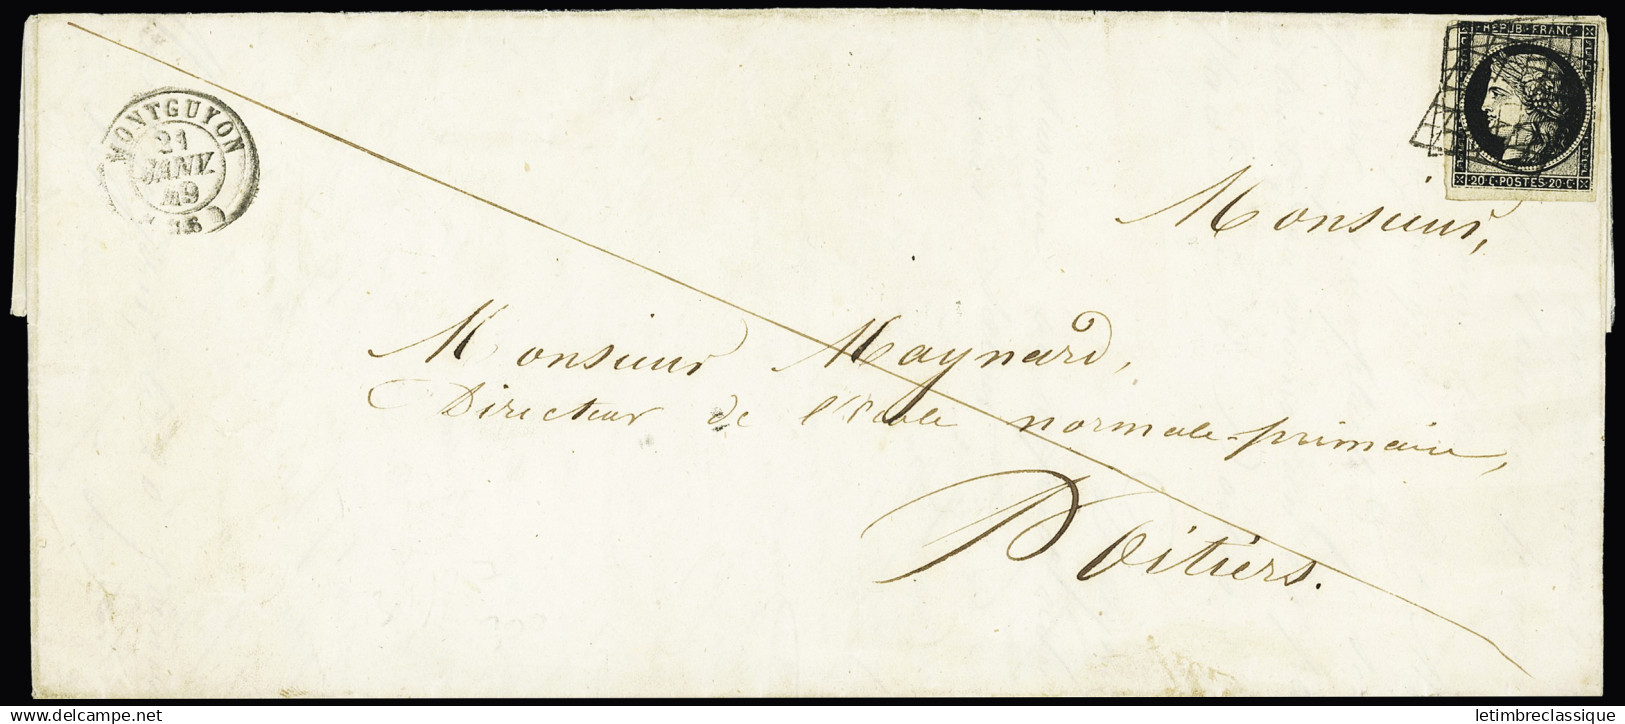 REPUB·FRANC
20·C·POSTES·20·C·
MONTGUYON
21
JANV.
49
Monsieur,
Monsieur Maynard,
Directeur de l'École normale-primaire,
Poitiers.
www.delcampe.net
letimbreclassique